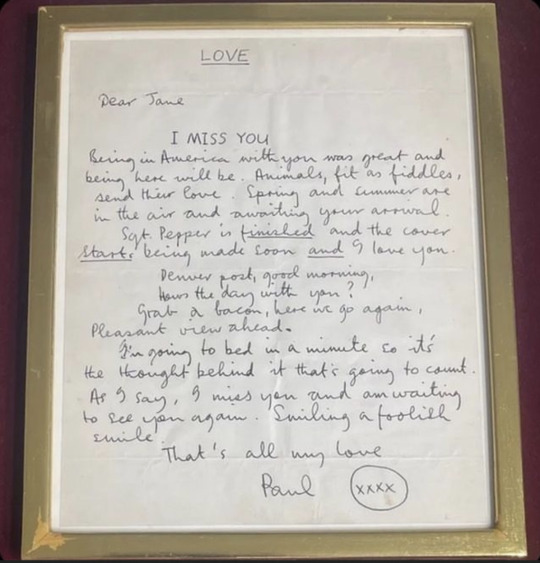 LOVE
Dear Jane
I MISS YOU
Being in America with you was great and
being here will be. Animals, fit as fiddles,
send their love. Spring and summer are
in the air and awaiting your arrival.
Sgt. Pepper is finished and the cover
starts being made soon and I love you.
Denver post, good morning,
Hows the day with you?
Grab a bacon, here we go again,
Pleasant view ahead.
I'm going to bed in a minute so it's
the thought behind it that's going to count.
As I say, I miss you and am waiting
to see you again. Smiling a foolish
smile.
That's all my love
Paul xxxx